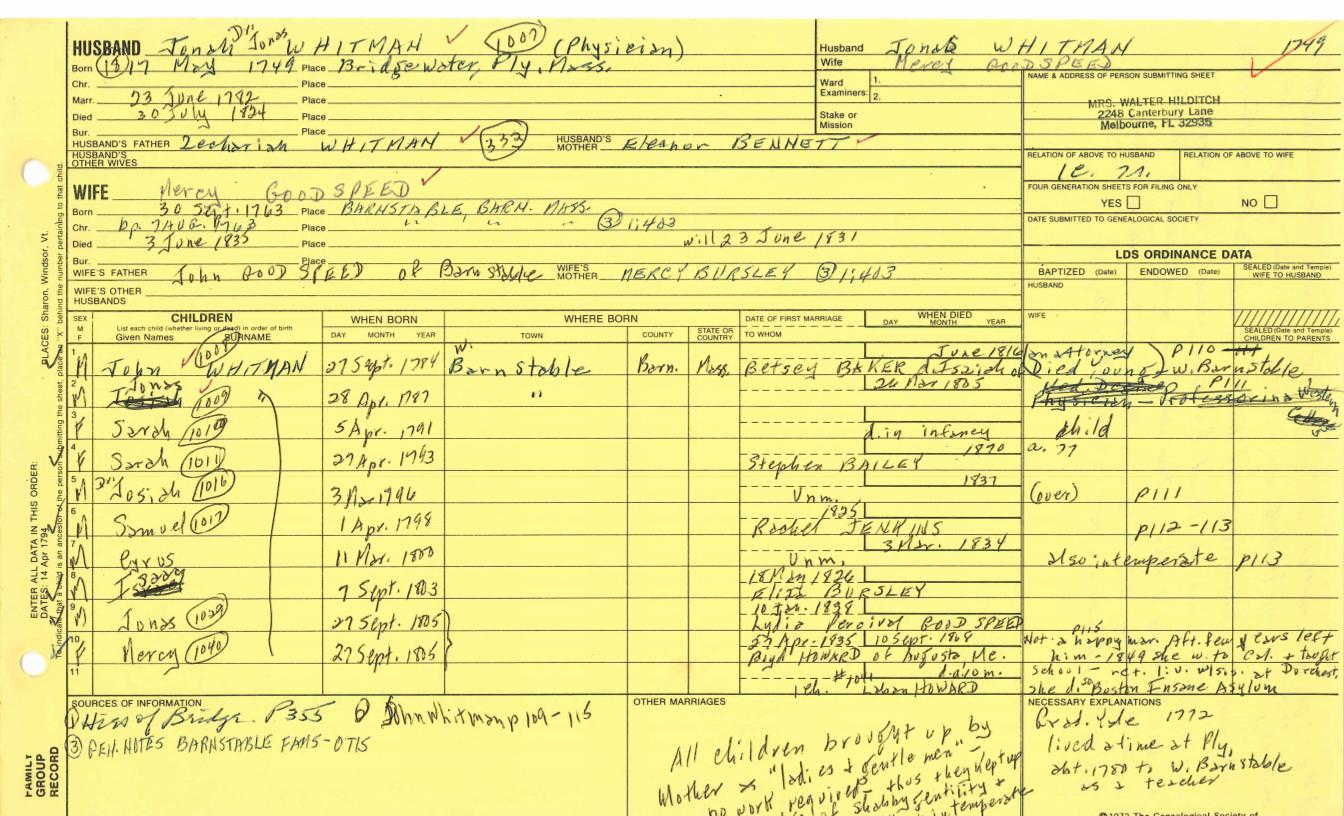 HUSBAND Jonah Dr. Jonas WHITMAN 1007 (Physician)
Born (18) 17 May 1749 Place Bridgewater, Ply. Mass.
Chr. Place
Marr. 23 June 1782 Place
Died 30 July 1824 Place
Bur. Place
HUSBAND'S FATHER Zechariah WHITMAN 333 HUSBAND'S MOTHER Eleanor BENNETT
HUSBAND'S OTHER WIVES
Husband Jonas WHITMAN 1749
Wife Mercy GOODSPEED
Ward Examiners: 1. 2.
Stake or Mission
NAME & ADDRESS OF PERSON SUBMITTING SHEET
MRS. WALTER HILDITCH
2248 Canterbury Lane
Melbourne, FL 32935
RELATION OF ABOVE TO HUSBAND RELATION OF ABOVE TO WIFE
FOUR GENERATION SHEETS FOR FILING ONLY
YES NO
DATE SUBMITTED TO GENEALOGICAL SOCIETY
WIFE Mercy GOODSPEED
Born 30 Sept. 1763 Place BARNSTABLE, BARN. MASS.
Chr. bp. 7 AUG. 1763 Place " " " ③ 1;403
Died 3 June 1835 Place will 23 June 1831
Bur. Place
WIFE'S FATHER John GOODSPEED of Barnstable WIFE'S MOTHER MERCY BURSLEY ③ 1;403
WIFE'S OTHER HUSBANDS
LDS ORDINANCE DATA
BAPTIZED (Date) ENDOWED (Date) SEALED (Date and Temple) WIFE TO HUSBAND
HUSBAND
WIFE
SEALED (Date and Temple) CHILDREN TO PARENTS
SEX M F CHILDREN List each child (whether living or dead) in order of birth Given Names SURNAME WHEN BORN DAY MONTH YEAR WHERE BORN TOWN COUNTY STATE OR COUNTRY DATE OF FIRST MARRIAGE TO WHOM WHEN DIED DAY MONTH YEAR
1 M John 1008 WHITMAN 27 Sept. 1784 W. Barnstable Barn. Mass. Betsey BAKER d. Isaiah June 1816 an Attorney Died Young - W. Barnstable P110
2 M Jonas 1009 28 Apr. 1787 " 26 Mar 1805 P111
3 F Sarah 5 Apr. 1791 d. in infancy child
4 F Sarah 1011 27 Apr. 1793 Stephen BAILEY 1870 a. 77
5 M Dr. Josiah 1016 3 Mar 1796 Unm. 1837 (over) P111
6 M Samuel 1017 1 Apr. 1798 1825 Rachel JENKINS P112-113
7 M Cyrus 11 Mar. 1800 Unm. 3 Mar. 1834 also intemperate P113
8 M Isaac 7 Sept. 1803 18 May 1826 Eliza BURSLEY
9 M Jonas 1029 27 Sept. 1805 10 Jan. 1828 Lydia Percival GOODSPEED
10 F Mercy 1040 27 Sept. 1805 Apr. 1835 10 Sept. 1868 HOWARD of Augusta, Me.
P115 Not a happy mar. Aft. few years left
him - 1849 she w. to Cal. & taught
school - ret. liv. w/sis. at Dorchest.
she d. Boston Insane Asylum
11 1 ch. HOWARD
SOURCES OF INFORMATION
① Hist of Bridge. P355 ② John Whitman p 109-115
③ GEN. NOTES BARNSTABLE FAMS-OTIS
OTHER MARRIAGES
All children brought up by
Mother as "ladies & gentlemen" -
no work required - thus they kept up
of shabby gentility &
intemperate
NECESSARY EXPLANATIONS
Grad. Yale 1772
lived a time at Ply,
abt. 1780 to W. Barnstable
as a teacher
FAMILY GROUP RECORD
ENTER ALL DATA IN THIS ORDER:
DATES: 14 Apr 1794
PLACES: Sharon, Windsor, Vt.